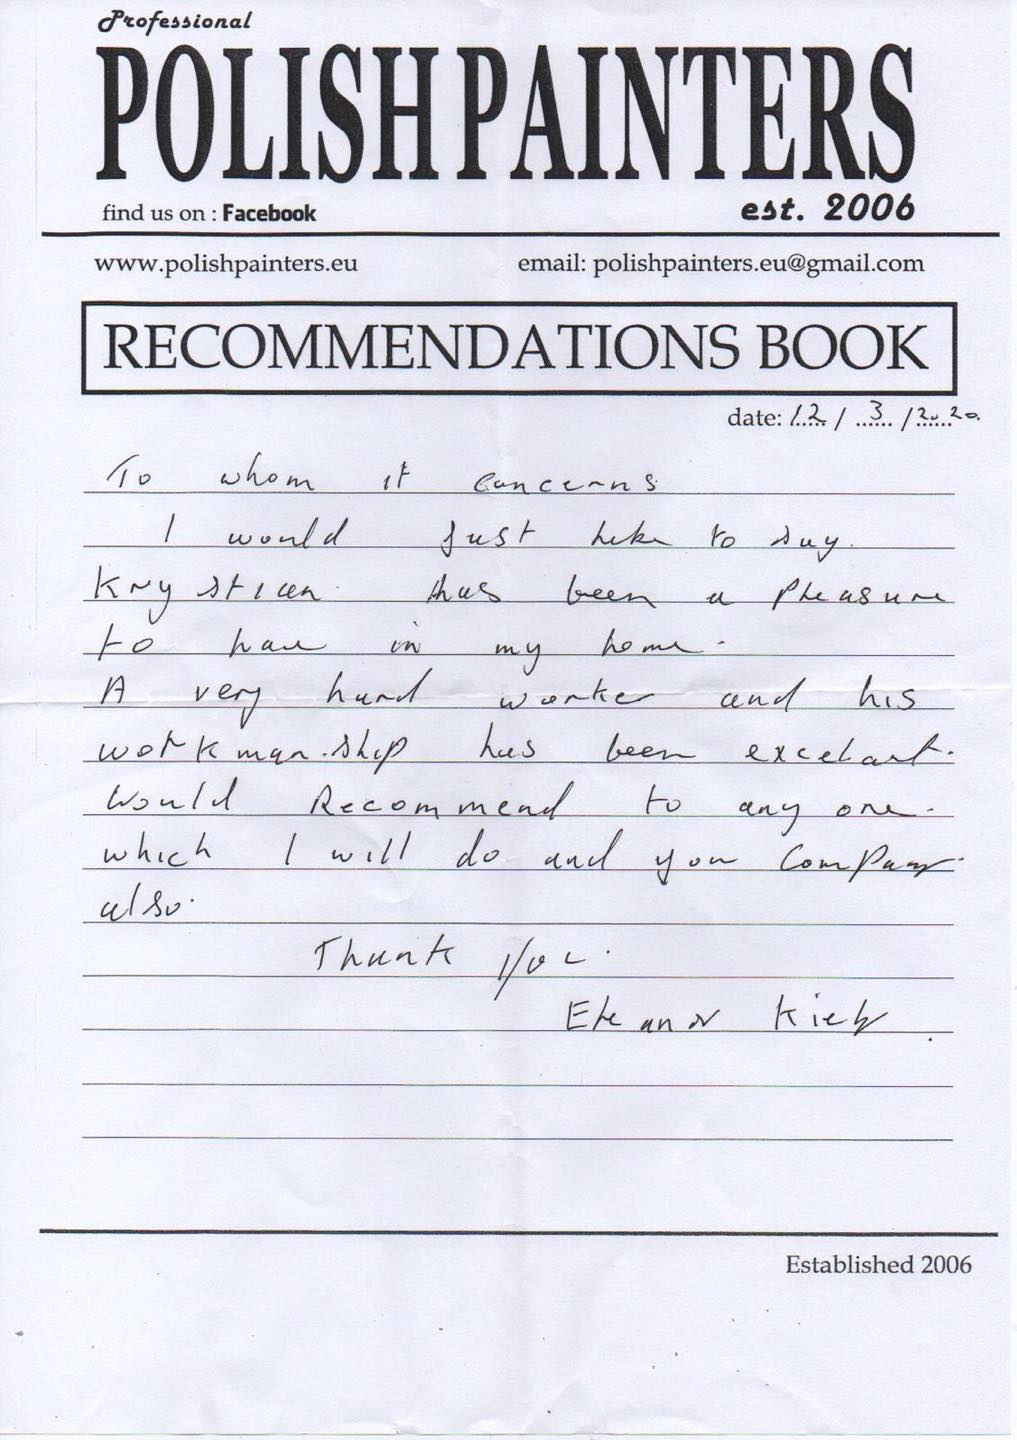 Professional
POLISH PAINTERS
find us on : Facebook
est. 2006
www.polishpainters.eu
email: polishpainters.eu@gmail.com
RECOMMENDATIONS BOOK
date: 12 / 3 / 2020.
To whom it concerns
I would just like to say.
Krystian has been a pleasure
to have in my home.
A very hard worker and his
workmanship has been excelant.
Would Recommend to any one.
which I will do and your Company
also.
Thank you.
Eleanor
Established 2006